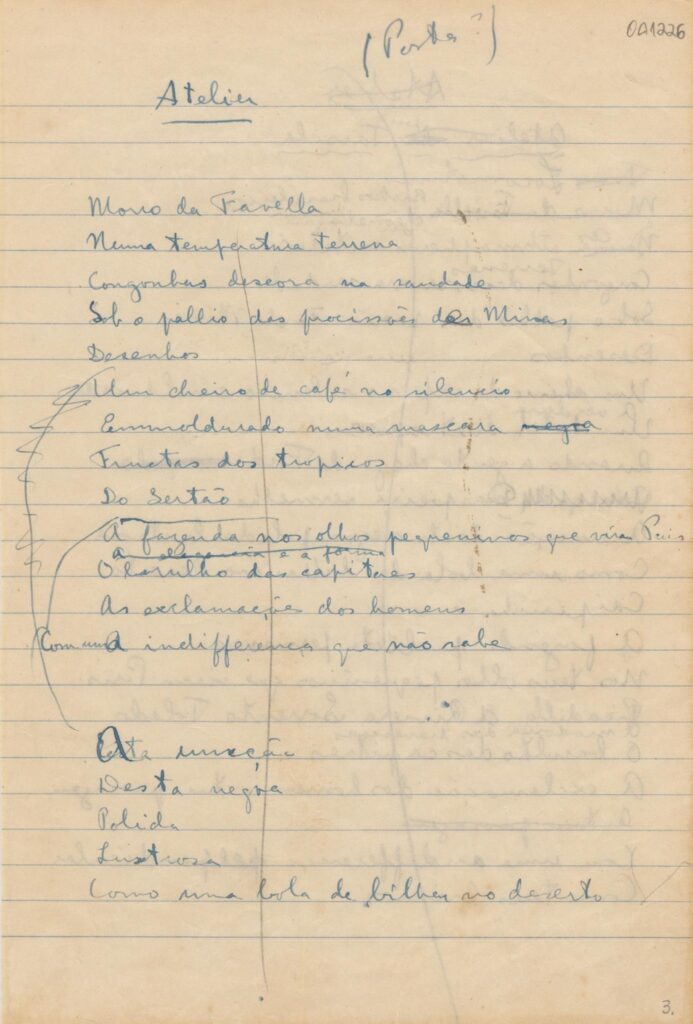 (Posta?)
OA1226
Atelier
Morro da Favella
Numa temperatura terrena
Congonhas descora na saudade
Sob o pallio das procissões de Minas
Desenhos
Um cheiro de café no silencio
Emmoldurado numa mascara negra
Fructas dos tropicos
Do Sertão
A fazenda nos olhos pequeninos que viram Paris
a elegancia e a forma
O barulho das capitaes
As exclamações dos homens
Com uma A indifferença que não sabe
A uncção
Desta negra
Polida
Lustrosa
Como uma bola de bilhar no deserto
3.